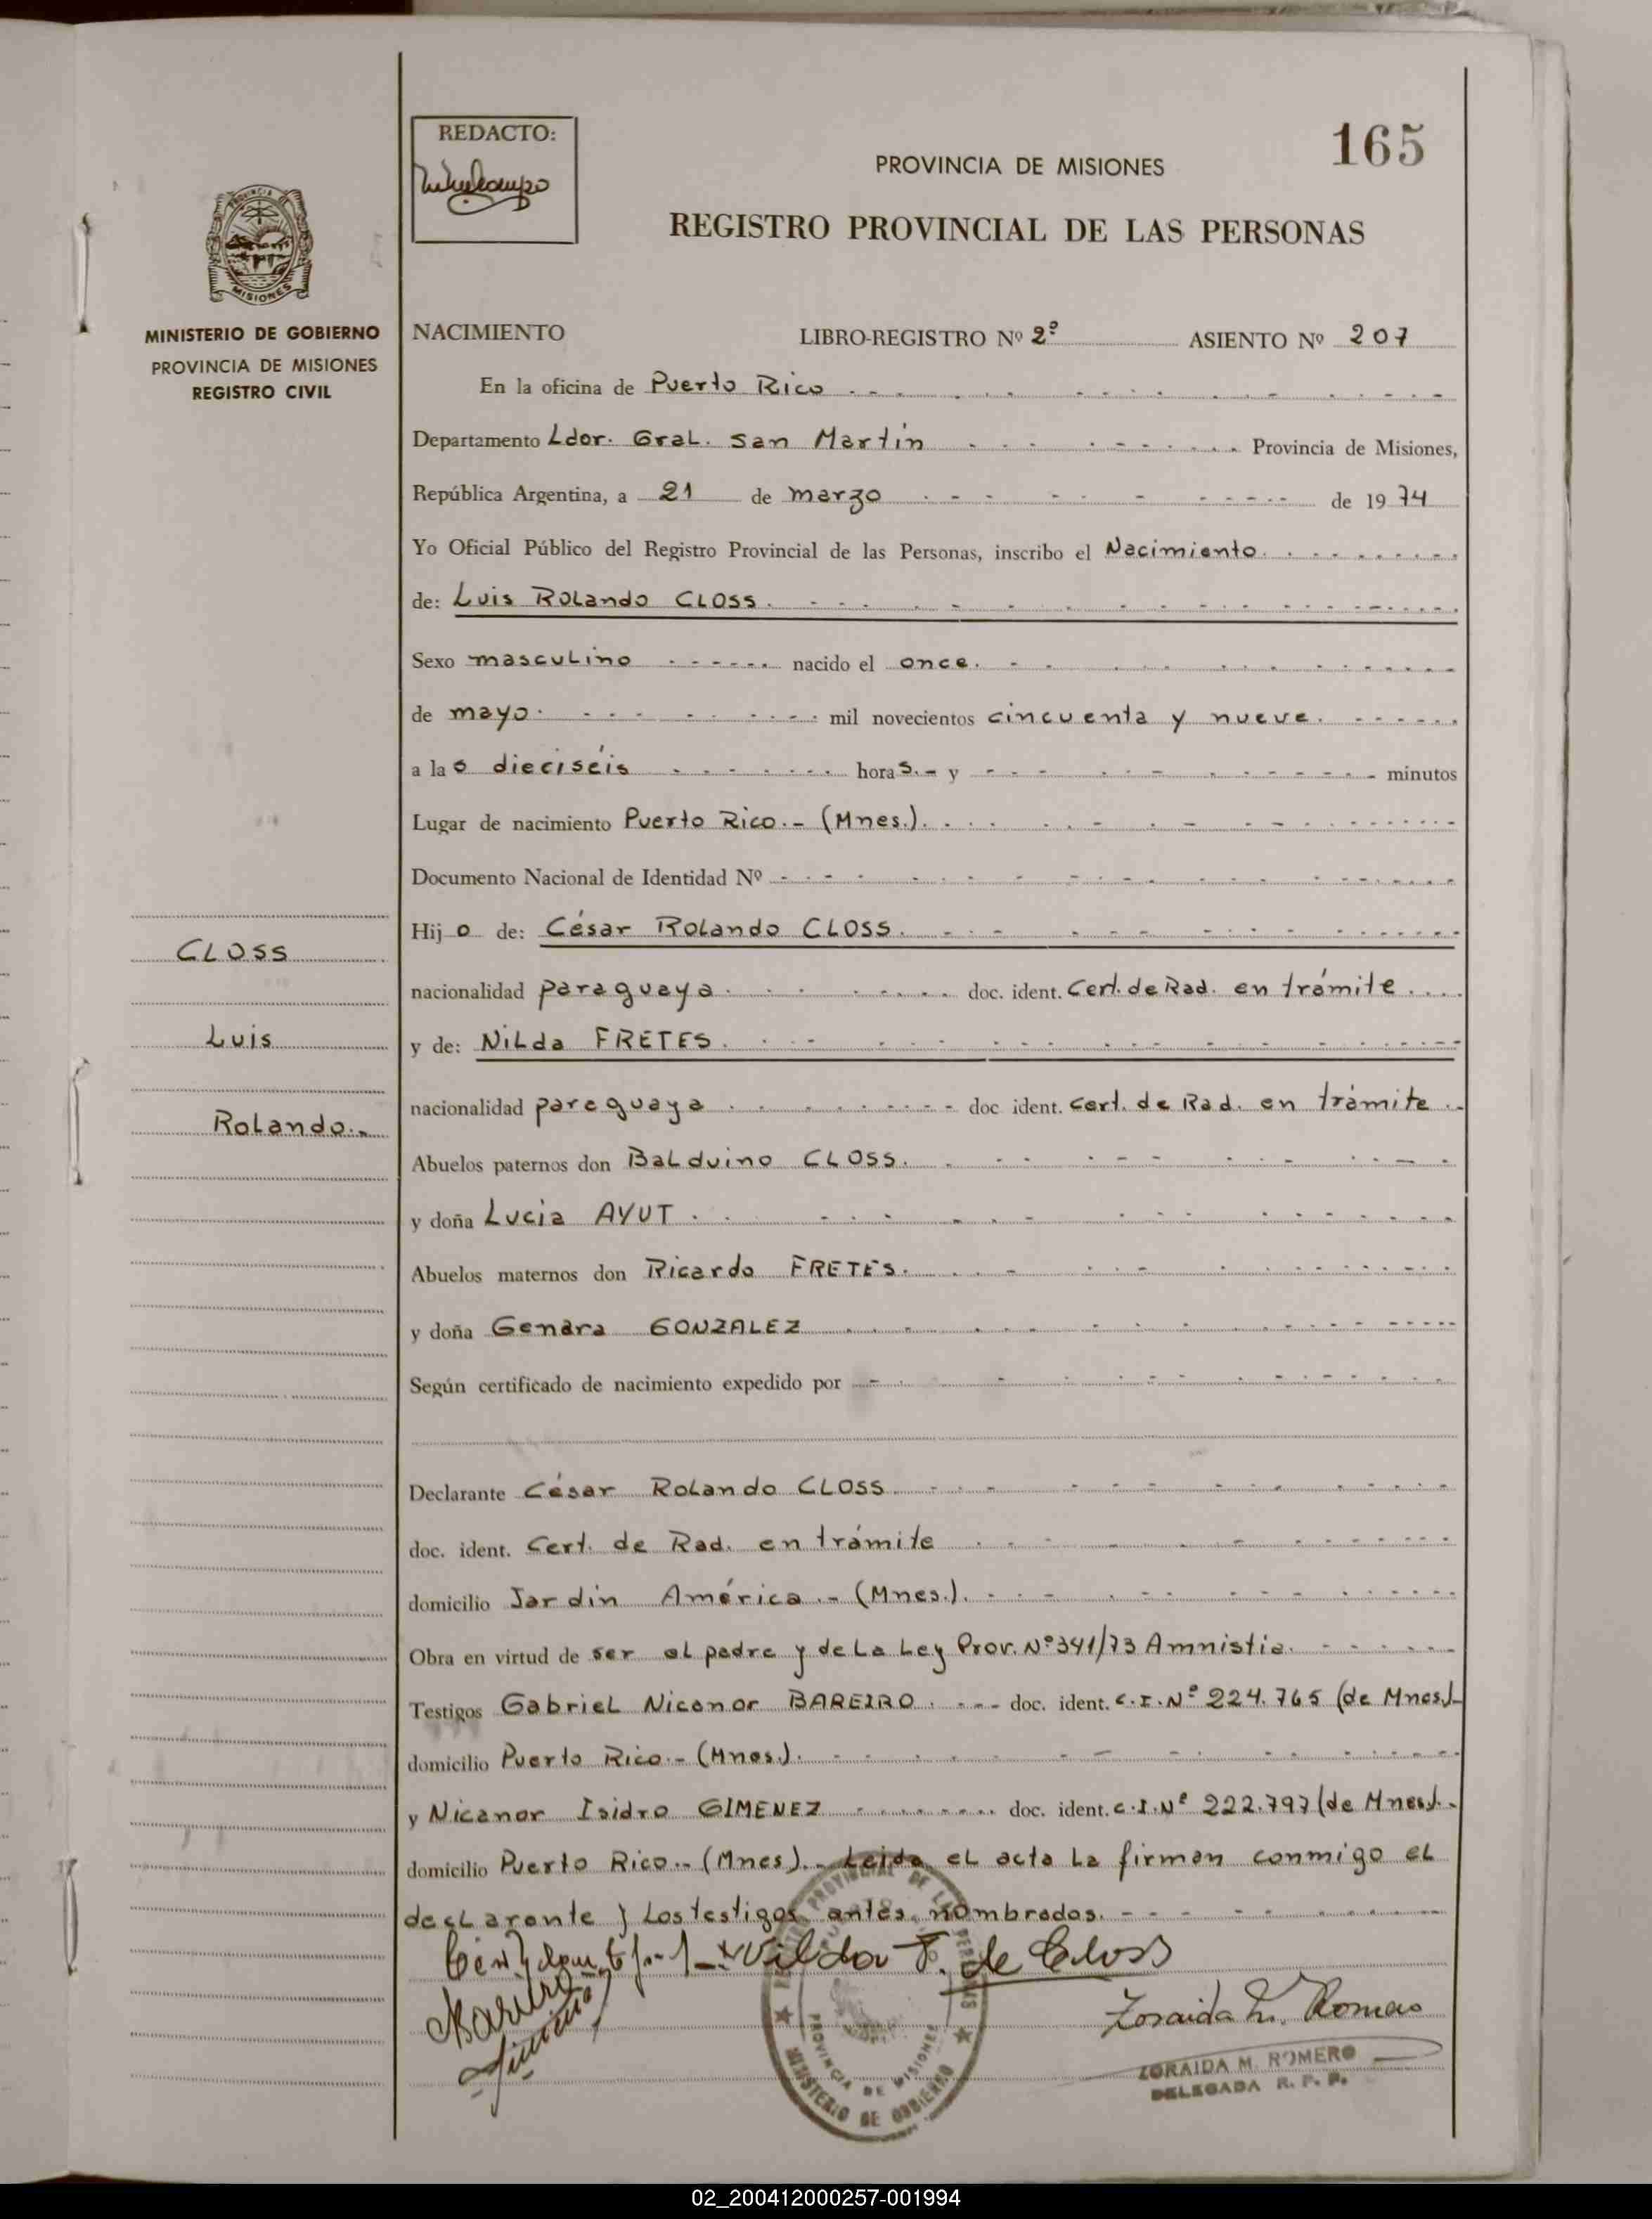 REDACTO:
165
PROVINCIA DE MISIONES
REGISTRO PROVINCIAL DE LAS PERSONAS
PROVINCIA
MISIONES
MINISTERIO DE GOBIERNO
PROVINCIA DE MISIONES
REGISTRO CIVIL
NACIMIENTO LIBRO-REGISTRO Nº 2º ASIENTO Nº 207
En la oficina de Puerto Rico
Departamento Ldor. Gral. San Martín Provincia de Misiones,
República Argentina, a 21 de marzo de 1974
Yo Oficial Público del Registro Provincial de las Personas, inscribo el Nacimiento.
de: Luis Rolando CLOSS.
Sexo masculino nacido el once.
de mayo. mil novecientos cincuenta y nueve.
a las dieciséis horas.- y - minutos
Lugar de nacimiento Puerto Rico.- (Mnes.).
Documento Nacional de Identidad Nº
Hijo de: César Rolando CLOSS.
nacionalidad paraguaya. doc. ident. Cert. de Rad. en trámite.
y de: Nilda FRETES.
nacionalidad paraguaya doc ident. Cert. de Rad. en trámite.
Abuelos paternos don Balduino CLOSS.
y doña Lucia AYUT.
Abuelos maternos don Ricardo FRETES.
y doña Genara GONZALEZ
Según certificado de nacimiento expedido por
Declarante César Rolando CLOSS
doc. ident. Cert. de Rad. en trámite
domicilio Jardín América.- (Mnes.).
Obra en virtud de ser el padre y de la Ley Prov. Nº 341/73 Amnistia.
Testigos Gabriel Nicanor BAREIRO. doc. ident. C.I. Nº 224.765 (de Mnes.).-
domicilio Puerto Rico.- (Mnes.).
y Nicanor Isidro GIMENEZ doc. ident. C.I. Nº 222.797 (de Mnes).-
domicilio Puerto Rico.- (Mnes).- Leida el acta la firman conmigo el
declarante y los testigos antes nombrados.
Nilda F. de Closs
Zoraida M. Romero
ZORAIDA M. ROMERO
DELEGADA R. P. P.
PROVINCIAL DE LAS PERSONAS
PROVINCIA DE MISIONES
MINISTERIO DE GOBIERNO
CLOSS
Luis
Rolando.-
02_200412000257-001994